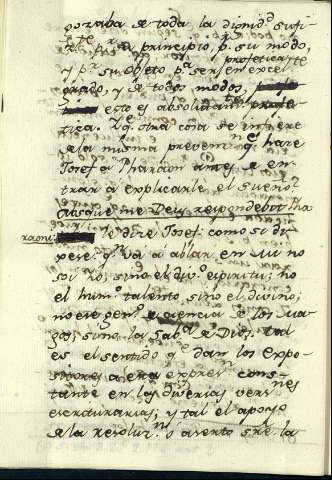 gozaba de toda la dignid.d sufi
pr su principio, p.r su modo,
y p.r su objeto p.a ser en exce
profetica
grado, y de todos modos,
esto es absolutam.te profe
tica. Y q.e otra cosa se infiere
de la misma prevenn q.e hace
Josef a Pharaon antes de en
trar a explicarle el sueño?
absque me Deus respondebit Pha
raoni: le dice Josef: como si di
xera: q.n va á ablar en mi no
soi Yo, sino el div.o espiritu; no
el hum.o talento, sino el divino;
no ese gen.o de ciencia de los
sino la Sab.a de Dios. tal
es el sentido q.e dan los expo
sitores a esta expres.n cons
tante en las diversas vers.nes
escriturarias; y tal el apoyo
de la resoluc.n ó asento sre. la